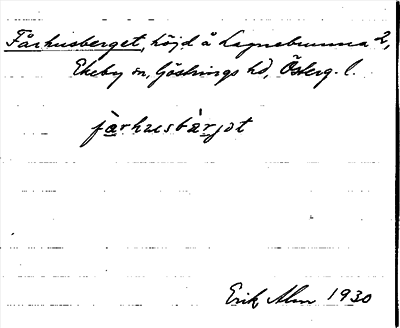 Fårhusberget, höjd å Lagnebrunna 2,
Ekeby sn, Göstrings hd, Österg. l.
fàrhusbà̱rjət
Erik Alm 1930